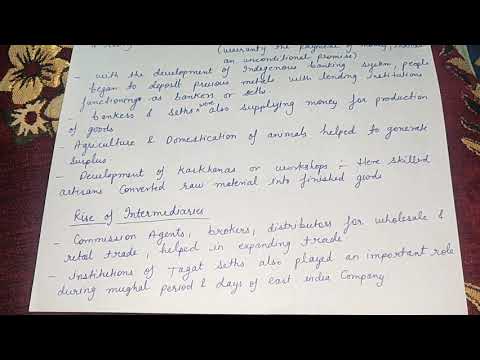 (warranty the payment of money,
an unconditional promise)
- with the development of Indegenous banking system, people
began to deposit precious metals with lending institutions
functioning as bankers or seths
- bankers & seths were also supplying money for production
of goods
- Agriculture & Domestication of animals helped to generate
surplus
- Development of Karkhanas or workshops :- Here skilled
artisans converted raw material into finished goods
Rise of Intermediaries
- Commission Agents, brokers, distributors for wholesale &
retail trade, helped in expanding trade
- Institutions of Jagat Seths also played an important role
during mughal period & days of east india Company.